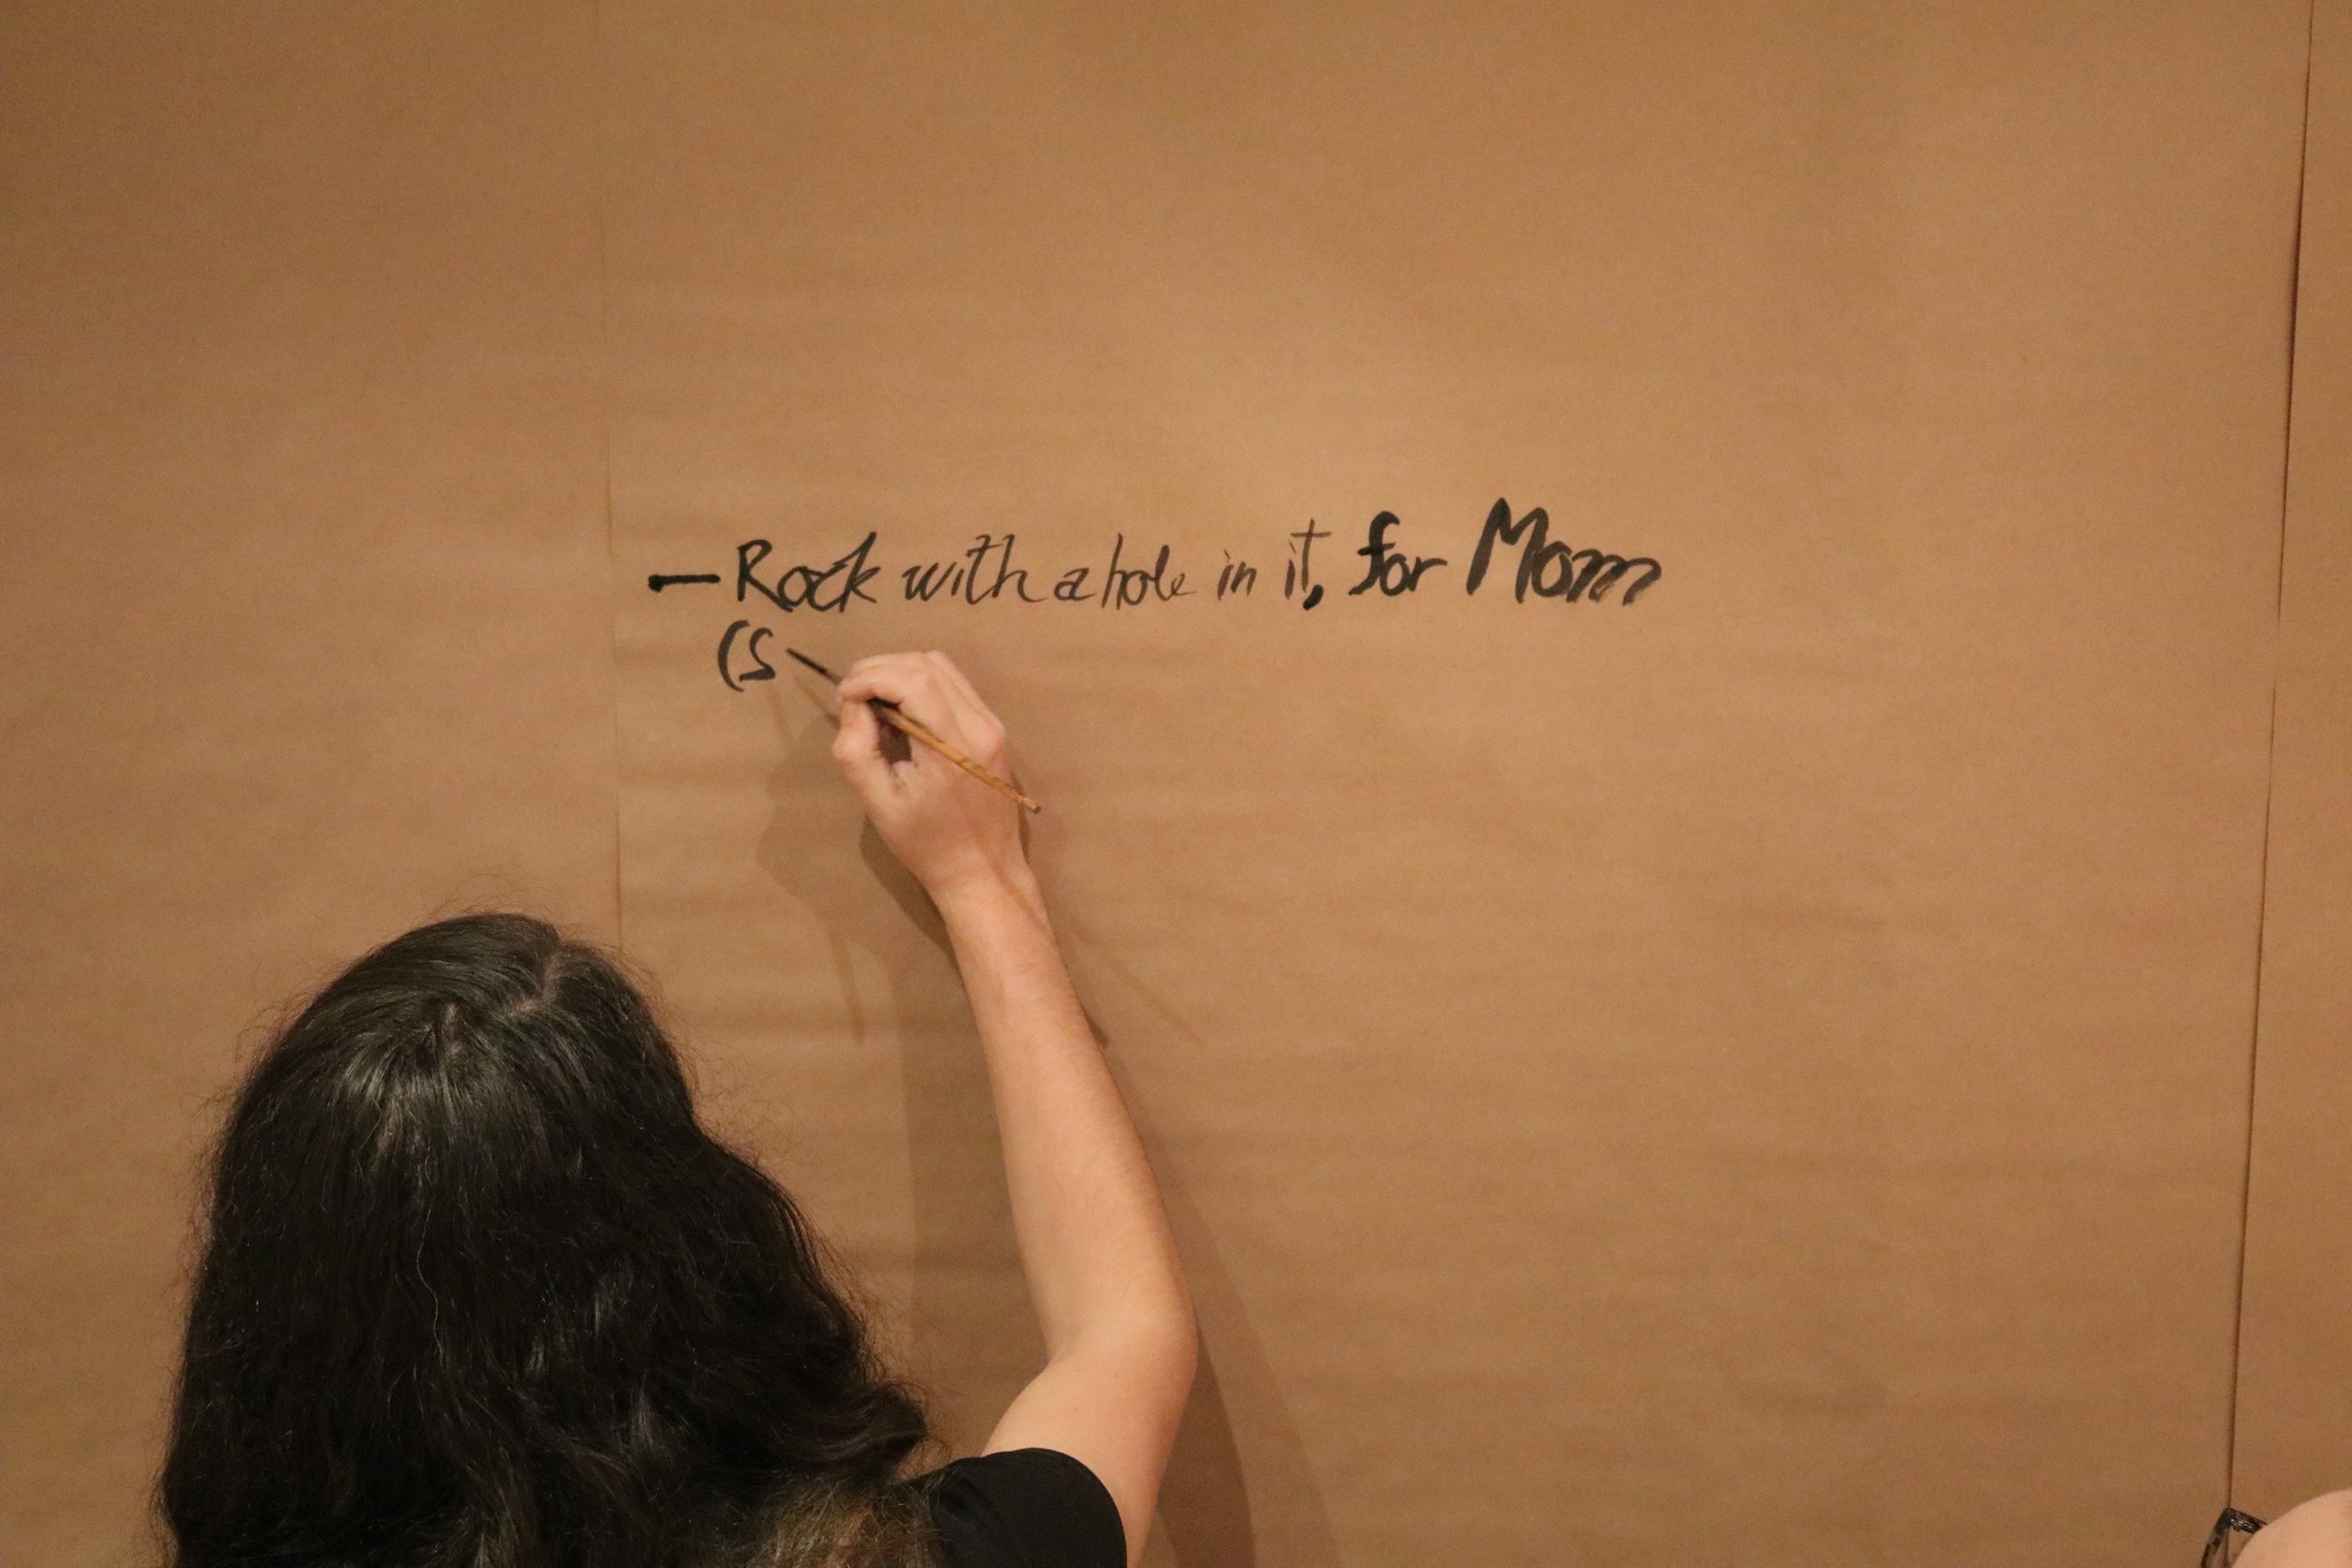 — Rock with a hole in it, for Mom
(S